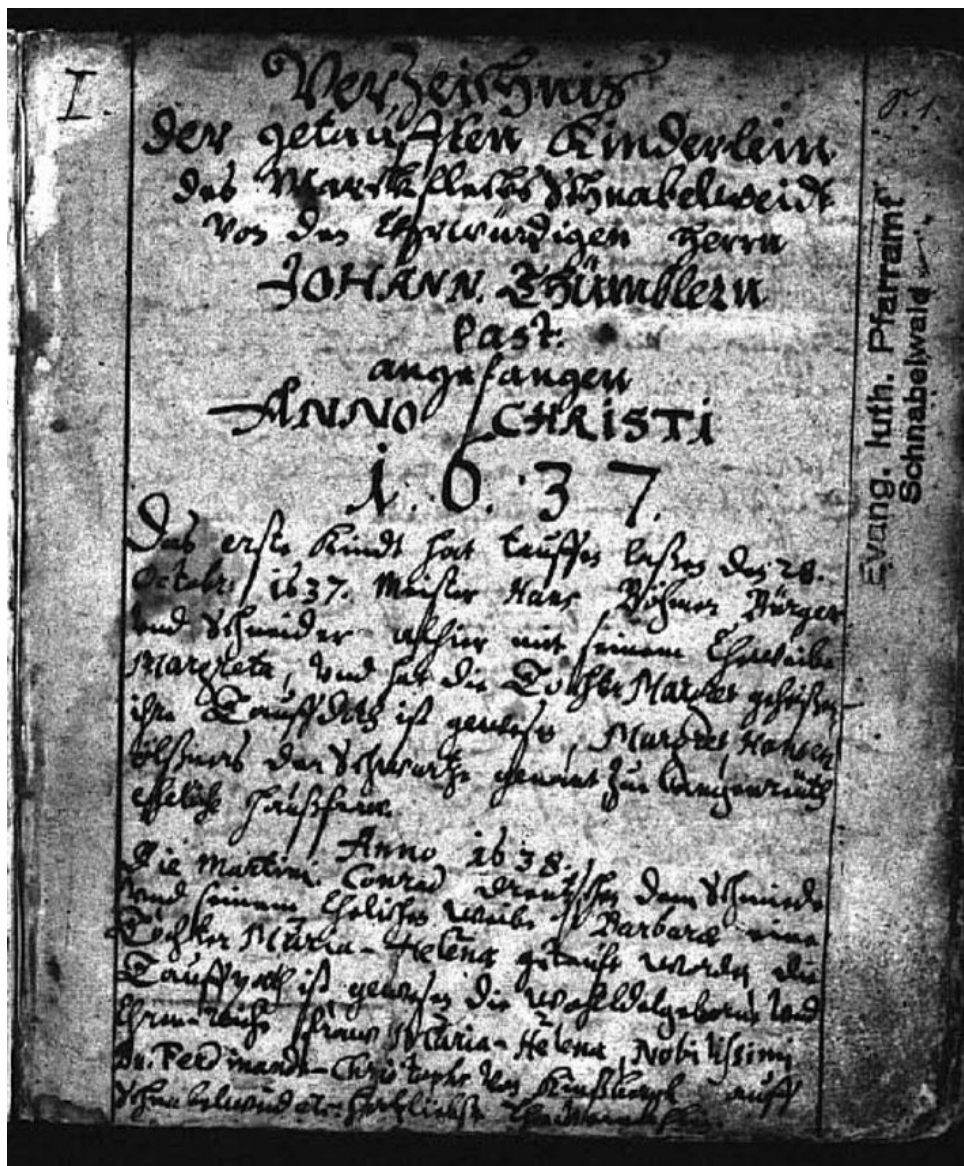 I.
S. 1.
Verzeichnis
der getaufften Kinderlein
des Marckfleckhs Schnabelweidt
Von den Ehrwürdigen Herrn
JOHANN. Thümblern
Past:
angefangen
ANNO CHRISTI
1.6.37.
Das erste Kindt hat tauffen laßen den 28.
Octobr: 1637. Meister Hans Böhmer Bürger
und Schneider alhier mit seinem Eheweibe
Margreta, und hat die Tochter Margret geheißen
ihre Tauffdoth ist gewesen, Margret, Hansen
der Schwartze genant zu
eheliche Haußfraw.
Anno 1638.
Die Martini. Conrad dem Schmiede
und seinem Ehelichen Weibe Barbara eine
Tochter Maria-Helena getaufft worden, die
Tauffdoth ist gewesen die Wohledelgeborne und
Frau Maria-Helena, Nobilissimi
Dn. Ferdinandi-Christophs Von auff
Schnabelweid
Evang. luth. Pfarramt
Schnabelwaid